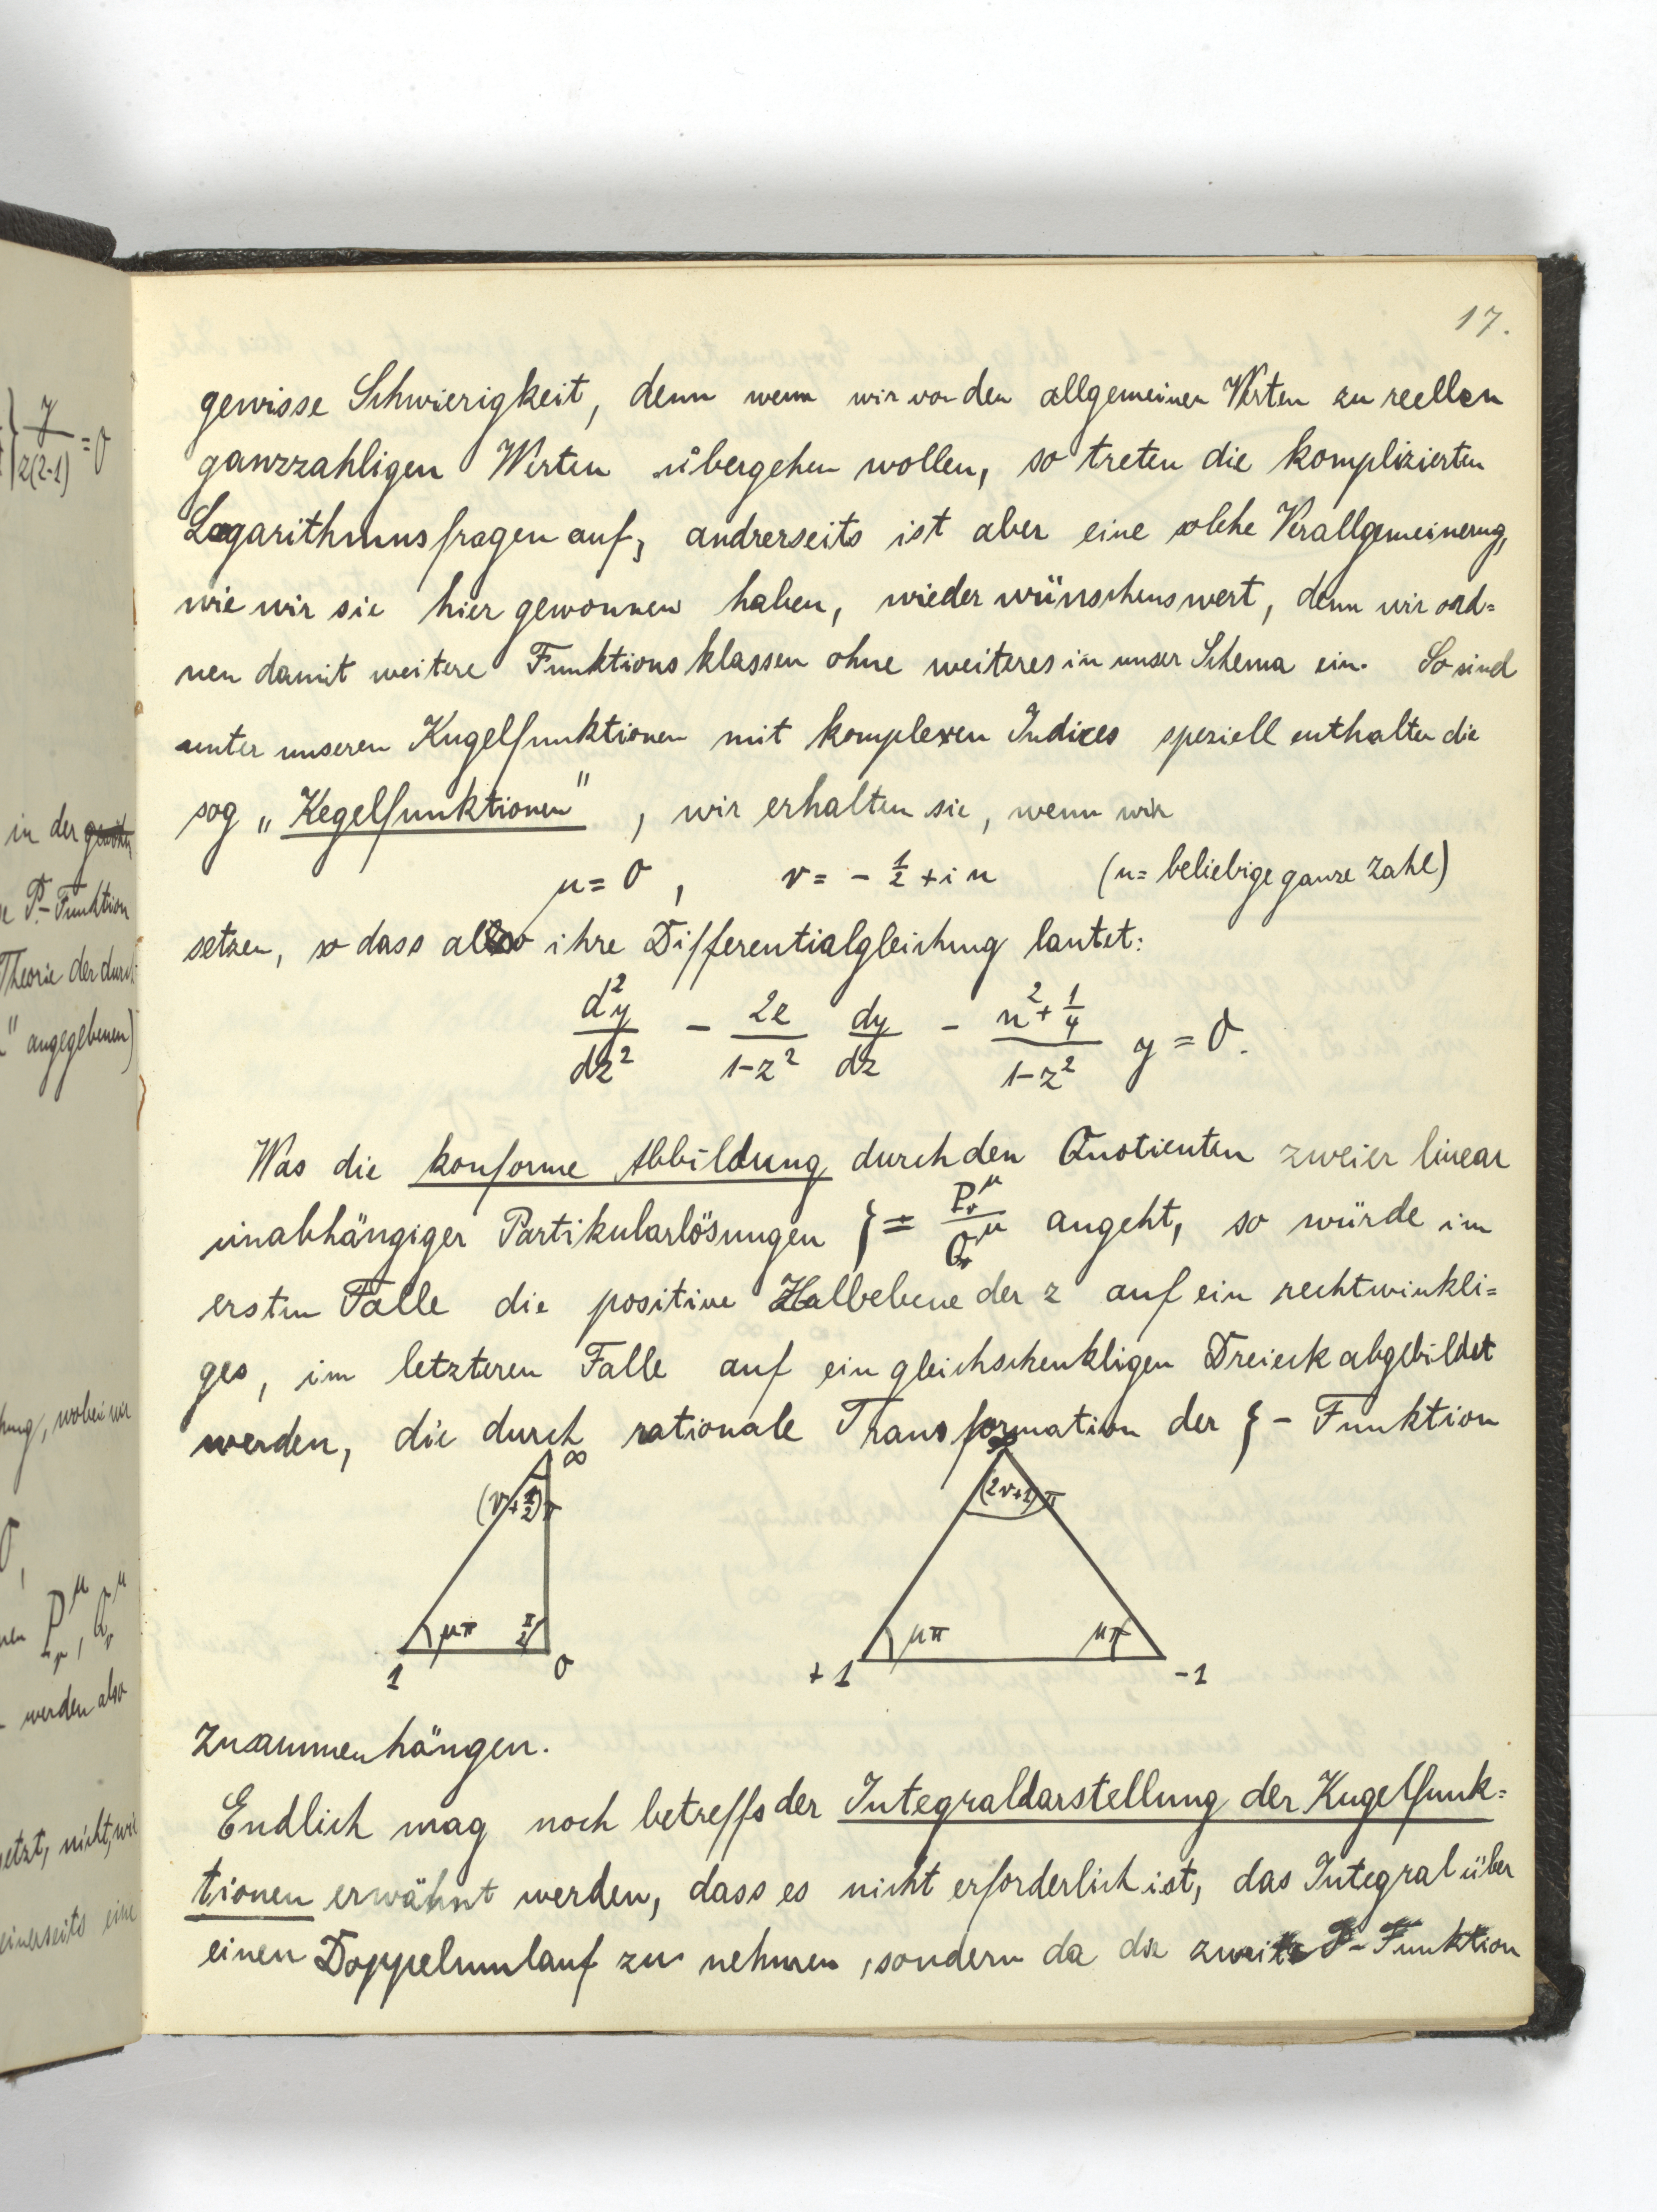 17.
gewisse Schwierigkeit, denn wenn wir von den allgemeinen Werten zu reellen
ganzzahligen Werten übergehen wollen, so treten die komplizierten
Logarithmusfragen auf, andrerseits ist aber eine solche Verallgemeinerung,
wie wir sie hier gewonnen haben, wieder wünschenswert, denn wir ord=
nen damit weitere Funktionsklassen ohne weiteres in unser Schema ein. So sind
unter unseren Kugelfunktionen mit komplexen Indices speziell enthalten die
sog „Kegelfunktionen", wir erhalten sie, wenn wir
μ = 0, ν = - 1/2 + i n (n = beliebige ganze Zahl)
setzen, so dass also ihre Differentialgleichung lautet:
d²y/dz² - 2z/(1-z²) dy/dz - (n² + 1/4)/(1-z²) y = 0.
Was die konforme Abbildung durch den Quotienten zweier linear
unabhängiger Partikularlösungen ζ = P_ν^μ / Q_ν^μ angeht, so würde im
ersten Falle die positive Halbebene der z auf ein rechtwinkli=
ges, im letzteren Falle auf ein gleichschenkligen Dreieck abgebildet
werden, die durch rationale Transformation der ζ - Funktion
∞
(ν + 1/2) π
μπ π/2
1 0
∞
(2ν+1) π
μπ μπ
+1 -1
zusammenhängen.
Endlich mag noch betreffs der Integraldarstellung der Kugelfunk=
tionen erwähnt werden, dass es nicht erforderlich ist, das Integral über
einen Doppelumlauf zu nehmen, sondern da die zweite P-Funktion
y/z(z-1) = 0
in der
P-Funktion
Theorie der durch
" angegebenen)
wobei wir
0,
P_ν^μ, Q_ν^μ
werden also
nicht, wie
einerseits eine